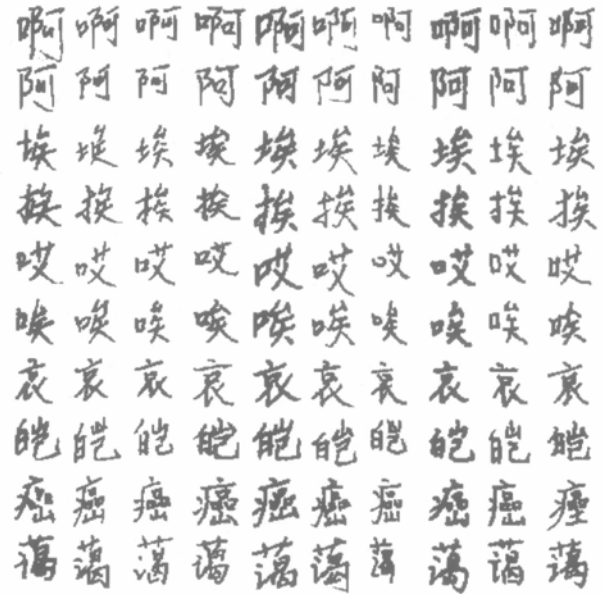 啊啊啊啊啊啊啊啊啊啊
阿阿阿阿阿阿阿阿阿阿
埃埃埃埃埃埃埃埃埃埃
挨挨挨挨挨挨挨挨挨挨
哎哎哎哎哎哎哎哎哎哎
唉唉唉唉唉唉唉唉唉唉
哀哀哀哀哀哀哀哀哀哀
皑皑皑皑皑皑皑皑皑皑
癌癌癌癌癌癌癌癌癌癌
蔼蔼蔼蔼蔼蔼蔼蔼蔼蔼